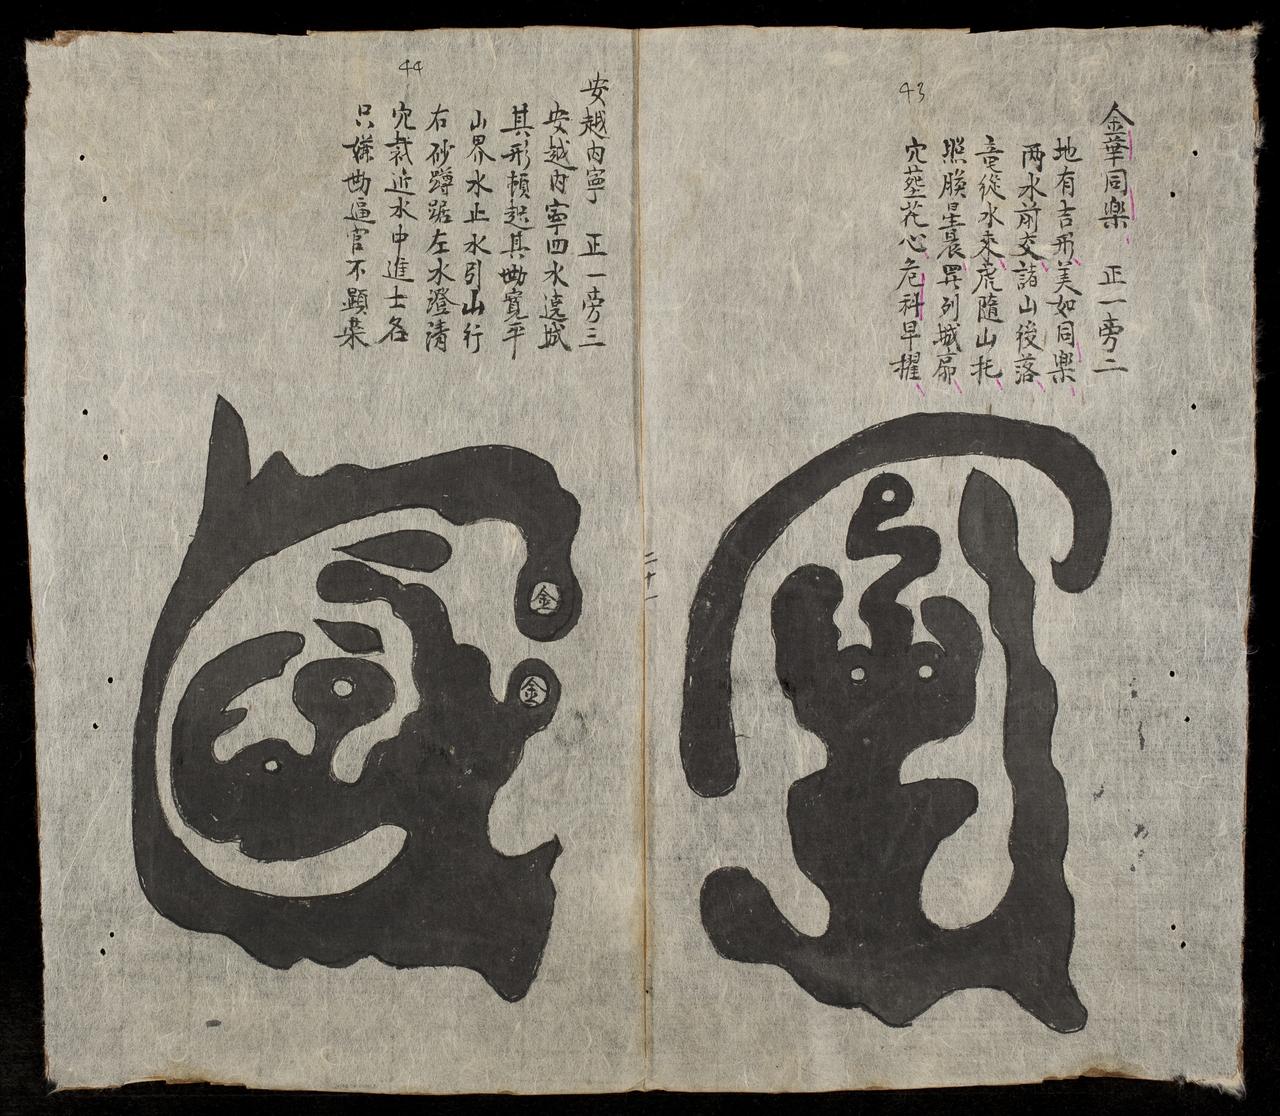 43
金華同樂 正一旁二
地有吉形美如同樂
两水前交諸山後落
竜從水来虎隨山托
照朕星晨羅列城廓
穴塟花心危科早擢
二十一
44
安越内寧 正一旁三
安越内寧四水遶城
其形頓起其勢寬平
山界水止水引山行
右砂蹲踞左水澄清
穴裁近水中進士名
只嫌勢逼官不顕荣
金
金